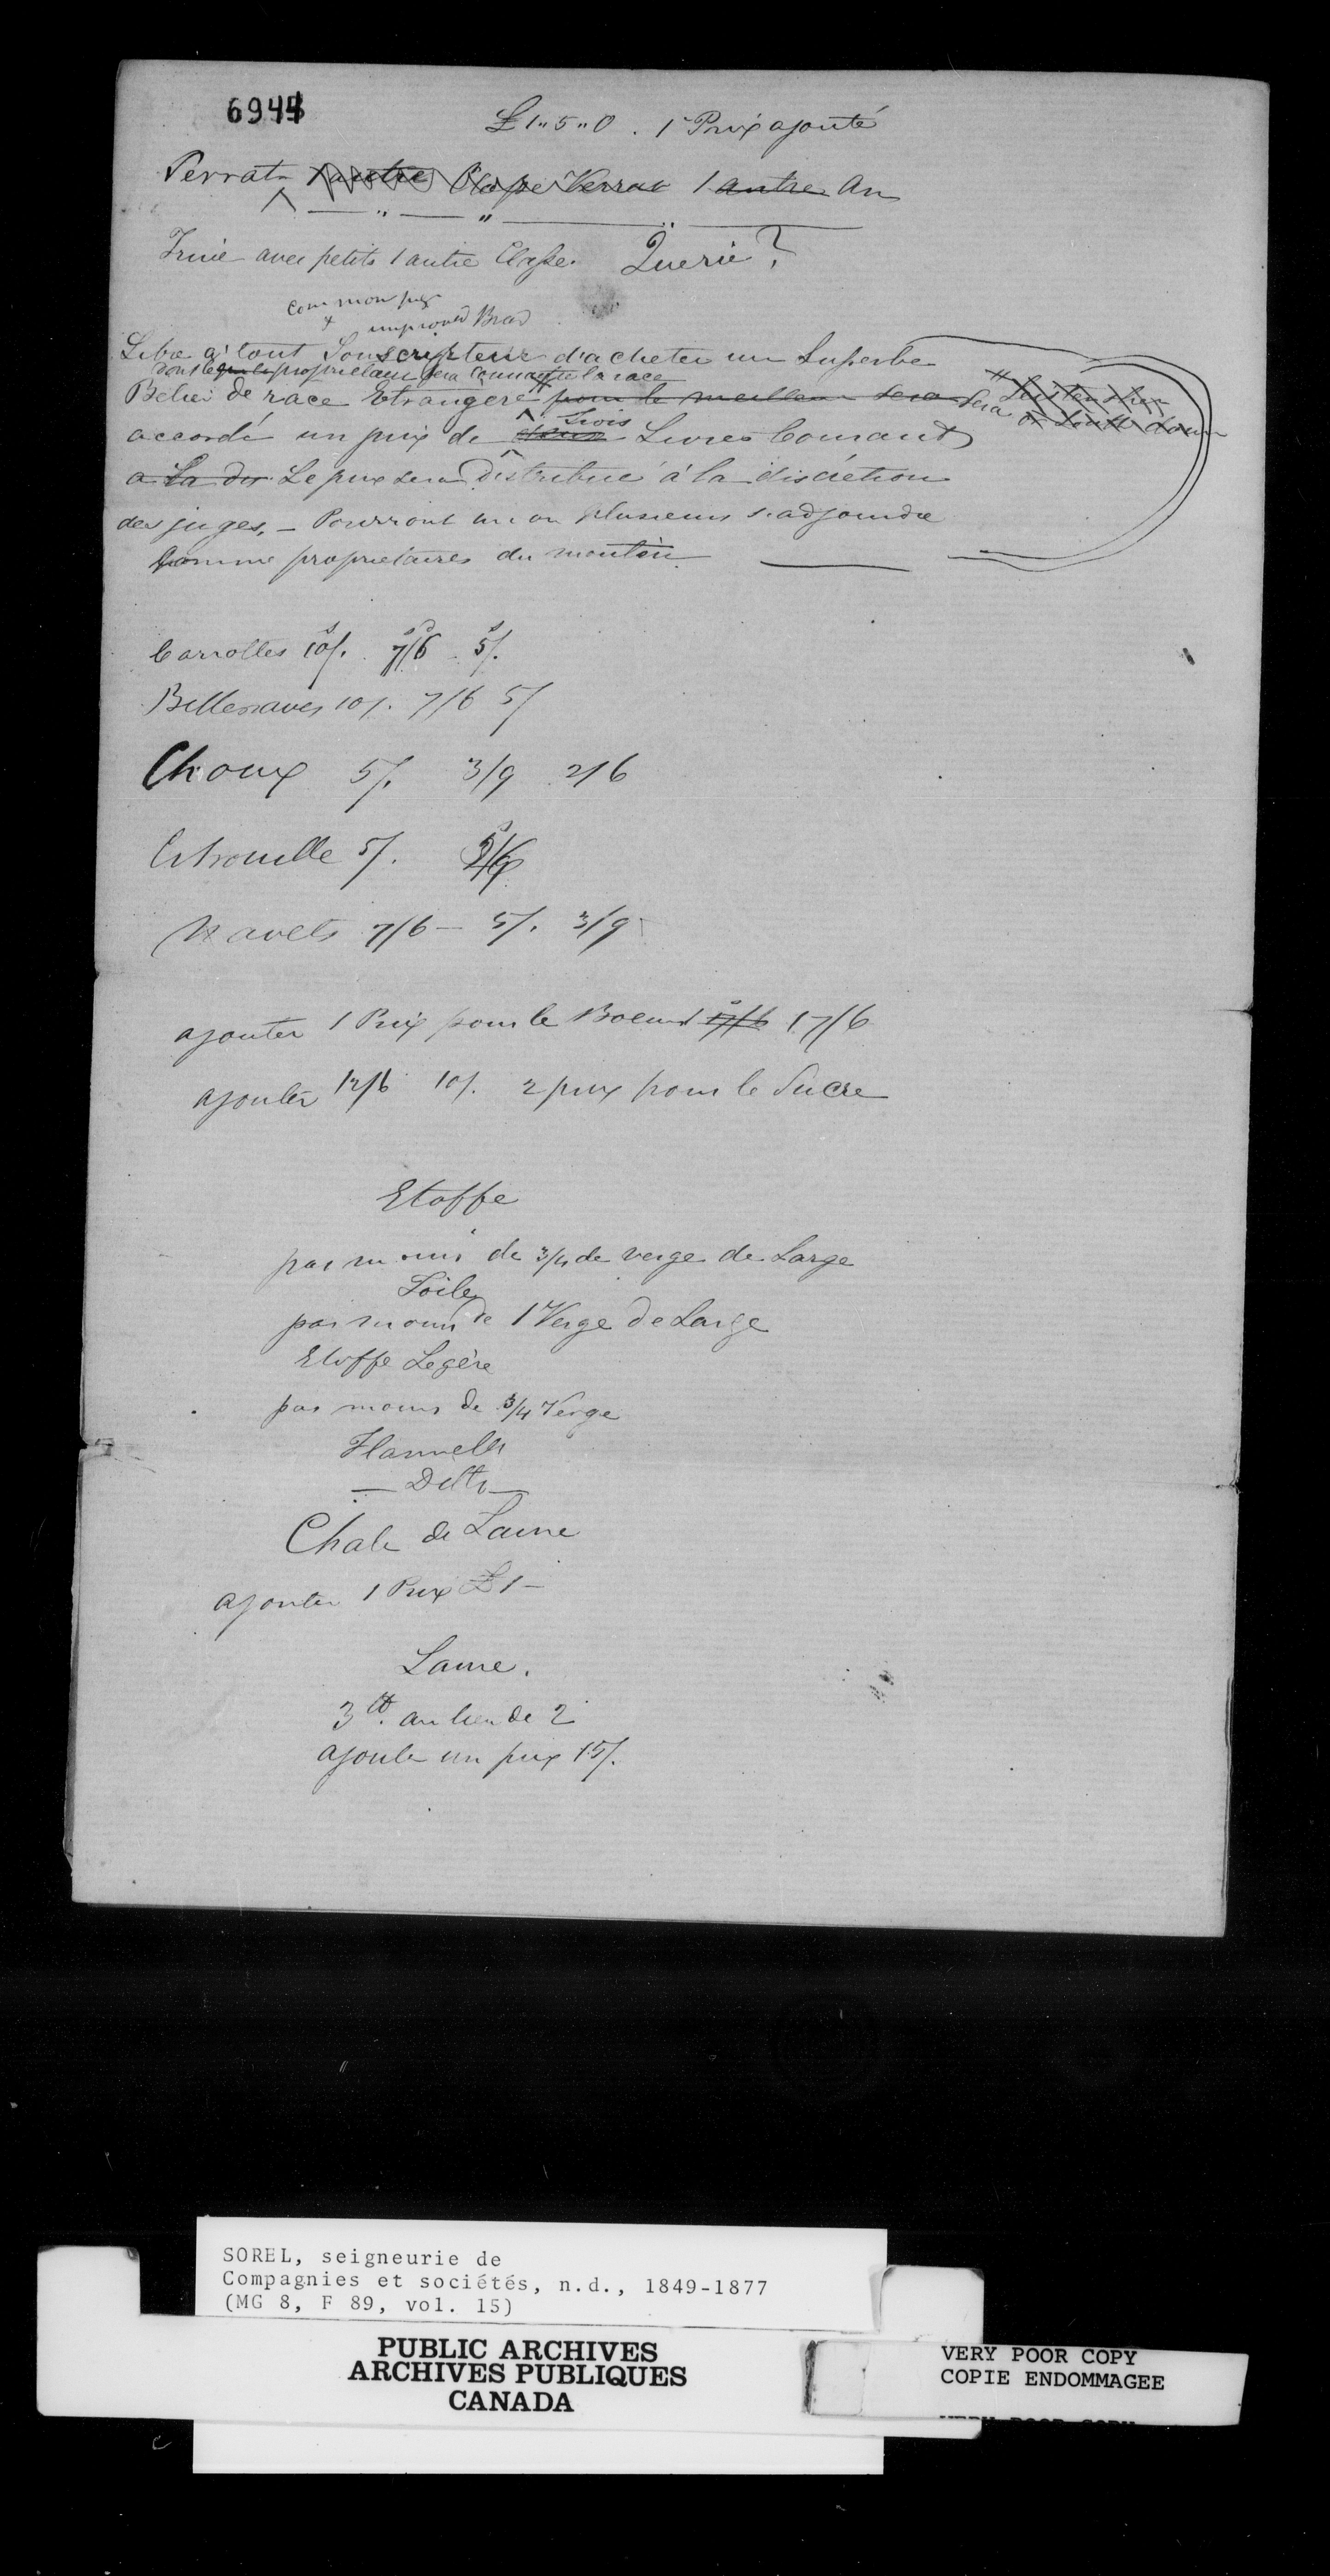 6944
£1"5"0. 1 Prix ajouté
Verrat 1 autre Classe Verrat 1 autre An
— " — " — "
Truie avec petits 1 autre Classe. Querie?
Common pig
+ improved Bread
Libre à tout Souscripteur d'acheter un Superbe
dont le propriétaire fera connaître la race
Belier de race Etrangère pour le meilleur sera Sera
Leistershire
or South down
accordé un prix de trois Livres Courant
a la dis Le prix sera Distribué à la discrétion
des juges, – Pourront un ou plusieurs s'adjoindre
Comme propriétaires du mouton
Carrottes 10/. 7/6 5/.
Betteraves 10/. 7/6 5/
Choux 5/. 3/9 2/6
Citrouille 5/.
Navets 7/6 – 5/. 3/9
ajouter 1 Prix pour le Boeuf 17/6 17/6
ajouter 12/6 10/. 2 prix pour le Sucre
Etoffe
pas moins de 3/4 de verge de Large
Toile
pas moins de 1 Verge de Large
Etoffe Legère
pas moins de 3/4 Verge
Flannelle
— Ditto —
Chale de Laine
ajouter 1 Prix £1 –
Laine.
3 lt. au lieu de 2
ajouter un prix 15/.
SOREL, seigneurie de
Compagnies et sociétés, n.d., 1849-1877
(MG 8, F 89, vol. 15)
PUBLIC ARCHIVES
ARCHIVES PUBLIQUES
CANADA
VERY POOR COPY
COPIE ENDOMMAGEE
VERY POOR COPY